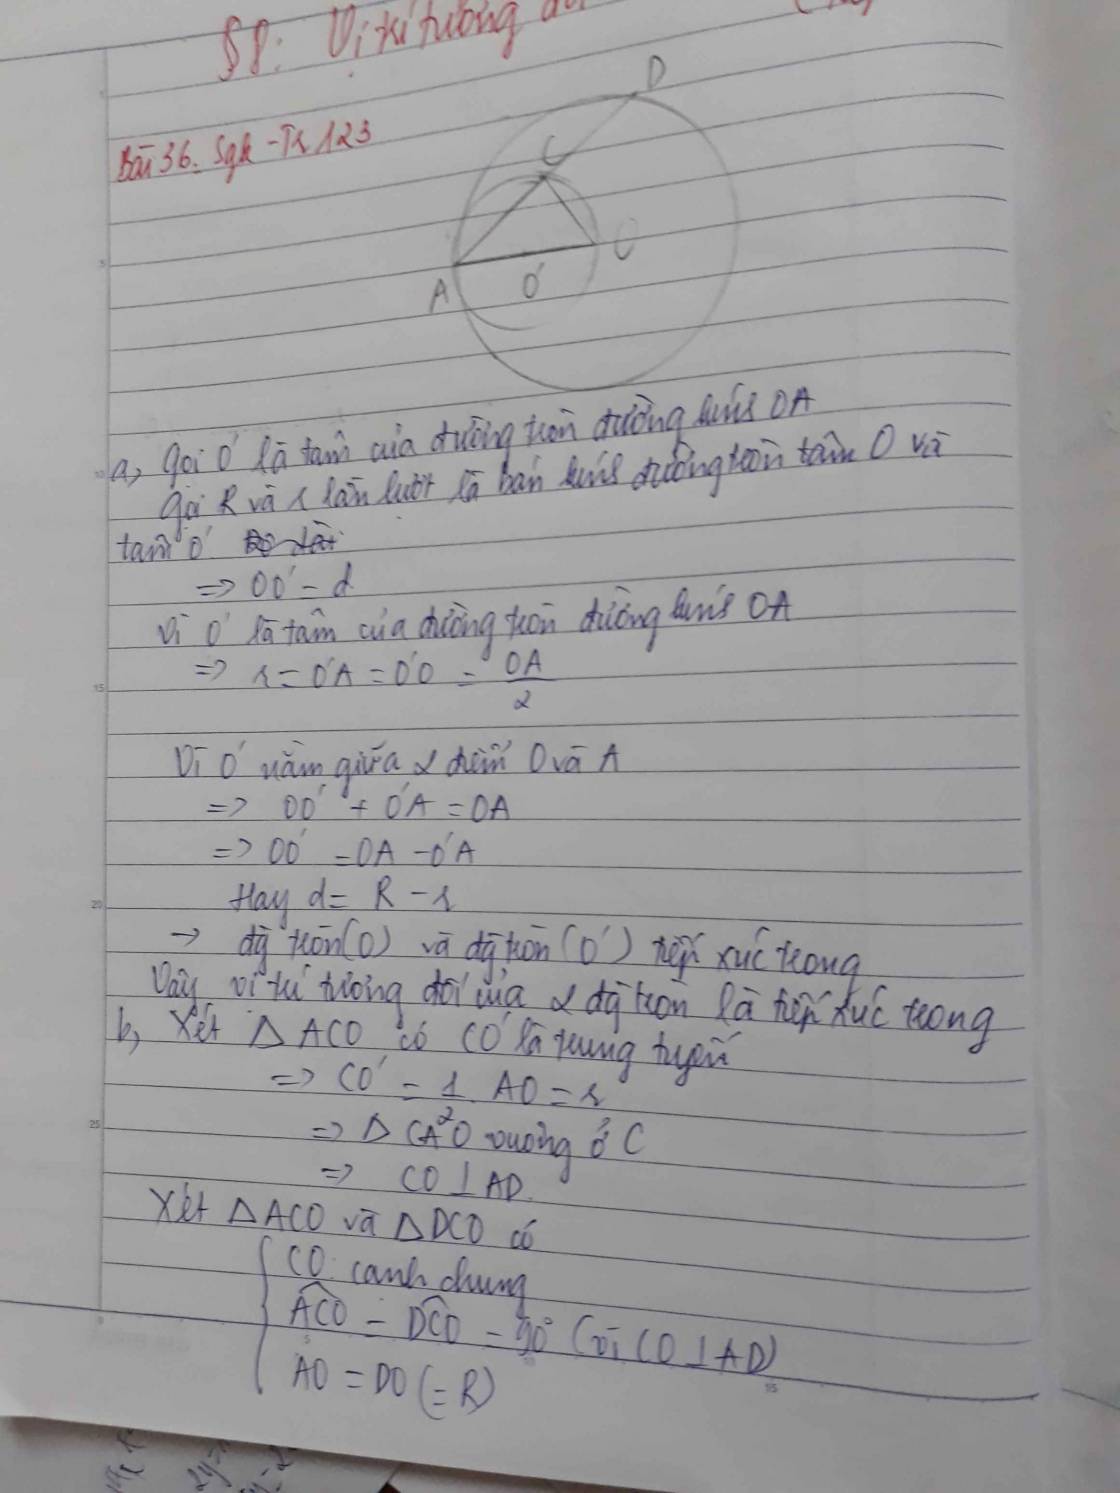 §8: Vị trí tương đối
Bài 36. Sgk - Tr 123
D
C
O
A
O'
a, Gọi O' là tâm của đường tròn đường kính OA
Gọi R và r lần lượt là bán kính đường tròn tâm O và
tâm O'
=> OO' = d
Vì O' là tâm của đường tròn đường kính OA
=> r = O'A = O'O = OA/2
Vì O' nằm giữa 2 điểm O và A
=> OO' + O'A = OA
=> OO' = OA - O'A
Hay d = R - r
→ đg tròn (O) và đg tròn (O') tiếp xúc trong
Vậy vị trí tương đối của 2 đg tròn là tiếp xúc trong
b, Xét △ ACO có CO' là trung tuyến
=> CO' = 1/2 . AO = r
=> △ CAO vuông ở C
=> CO ⊥ AD.
Xét △ACO và △DCO có
CO: cạnh chung
ACO = DCO = 90° (vì CO ⊥ AD)
AO = DO (= R)